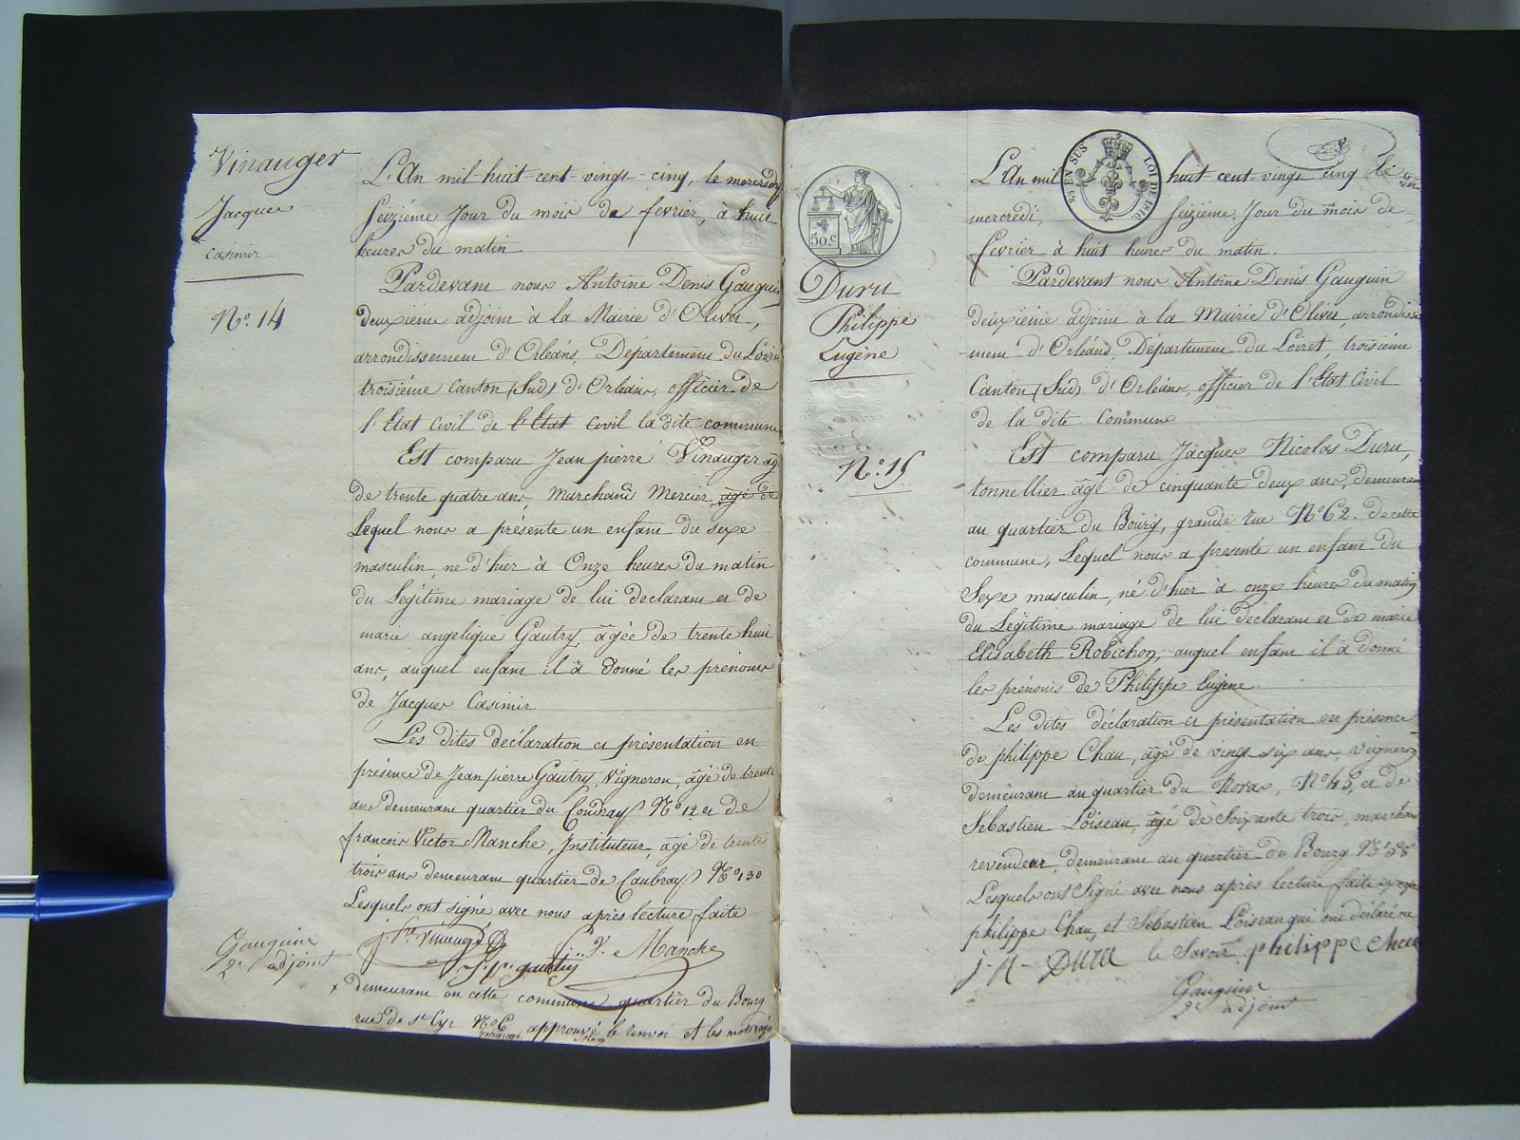 Vinauger
Jacques
Casimir
N.º 14
L'An mil huit-cent-vingt-cinq, le mercredy
Seizième Jour du mois de fevrier, à huit
heures du matin
Pardevant nous Antoine Denis Gauguin
deuxième adjoint à la Mairie d'Olivet,
arrondissement d'Orléans, Département du Loiret
troisième Canton (Sud) d'Orléans, officier de
l'Etat Civil de l'Etat Civil la dite commune
Est comparu Jean pierre Vinauger agé
de trente quatre ans, Marchand Mercier agé de
Lequel nous a présenté un enfant du Sexe
masculin, né d'hier à Onze heures du matin
du Légitime mariage de lui déclarant et de
marie angelique Gautry, agée de trente huit
ans, auquel enfant il a donné les prénoms
de Jacques Casimir
Les dites déclaration et présentation en
présence de Jean pierre Gautry, Vigneron, agé de trente
ans demeurant quartier du Coudray Nº 12 et de
francois Victor Manche, Instituteur, agé de trente
trois ans demeurant quartier de Caubray Nº 130
Lesquels ont signé avec nous après lecture faite
Gauguin
2e adjoint
J. Pre Vinauger
J. pre gautry
V. Manche
demeurant en cette commune quartier du Bourg
rue de St Cyr Nº 6 approuvé le renvoi et les mots rayés
50 C
EN SUS
LOI DE 1816
Duru
Philippe
Eugène
Nº. 15
L'An mil huit-cent vingt cinq le
mercredi, Seizième Jour du mois de
fevrier à huit heures du matin.
Pardevant nous Antoine Denis Gauguin
deuxième adjoint à la Mairie d'Olivet, arrondisse
-ment d'Orléans, Département du Loiret, troisième
Canton (Sud) d'Orléans, officier de l'Etat Civil
de la dite Commune
Est comparu Jacques Nicolas Duru,
tonnellier agé de cinquante deux ans, demeurant
au quartier du Bourg, grande rue Nº 62. de cette
commune, Lequel nous a présenté un enfant du
Sexe masculin, né d'hier à onze heures du matin
du Légitime mariage de lui déclarant et de marie
Elisabeth Robichon, auquel enfant il a donné
les prénoms de Philippe Eugène
Les dites déclaration et présentation en présence
de philippe Chau, agé de vingt six ans, vigneron
demeurant au quartier du Nº 45, et de
Sébastien Loiseau, agé de Soixante trois, marchand
revendeur, demeurant au quartier du Bourg Nº 58
Lesquels ont Signé avec nous après lecture faite
philippe Chau, et Sébastien Loiseau qui ont déclaré ne
le Savoir. philippe chau
J. N. Duru
Gauguin
2e adjoint